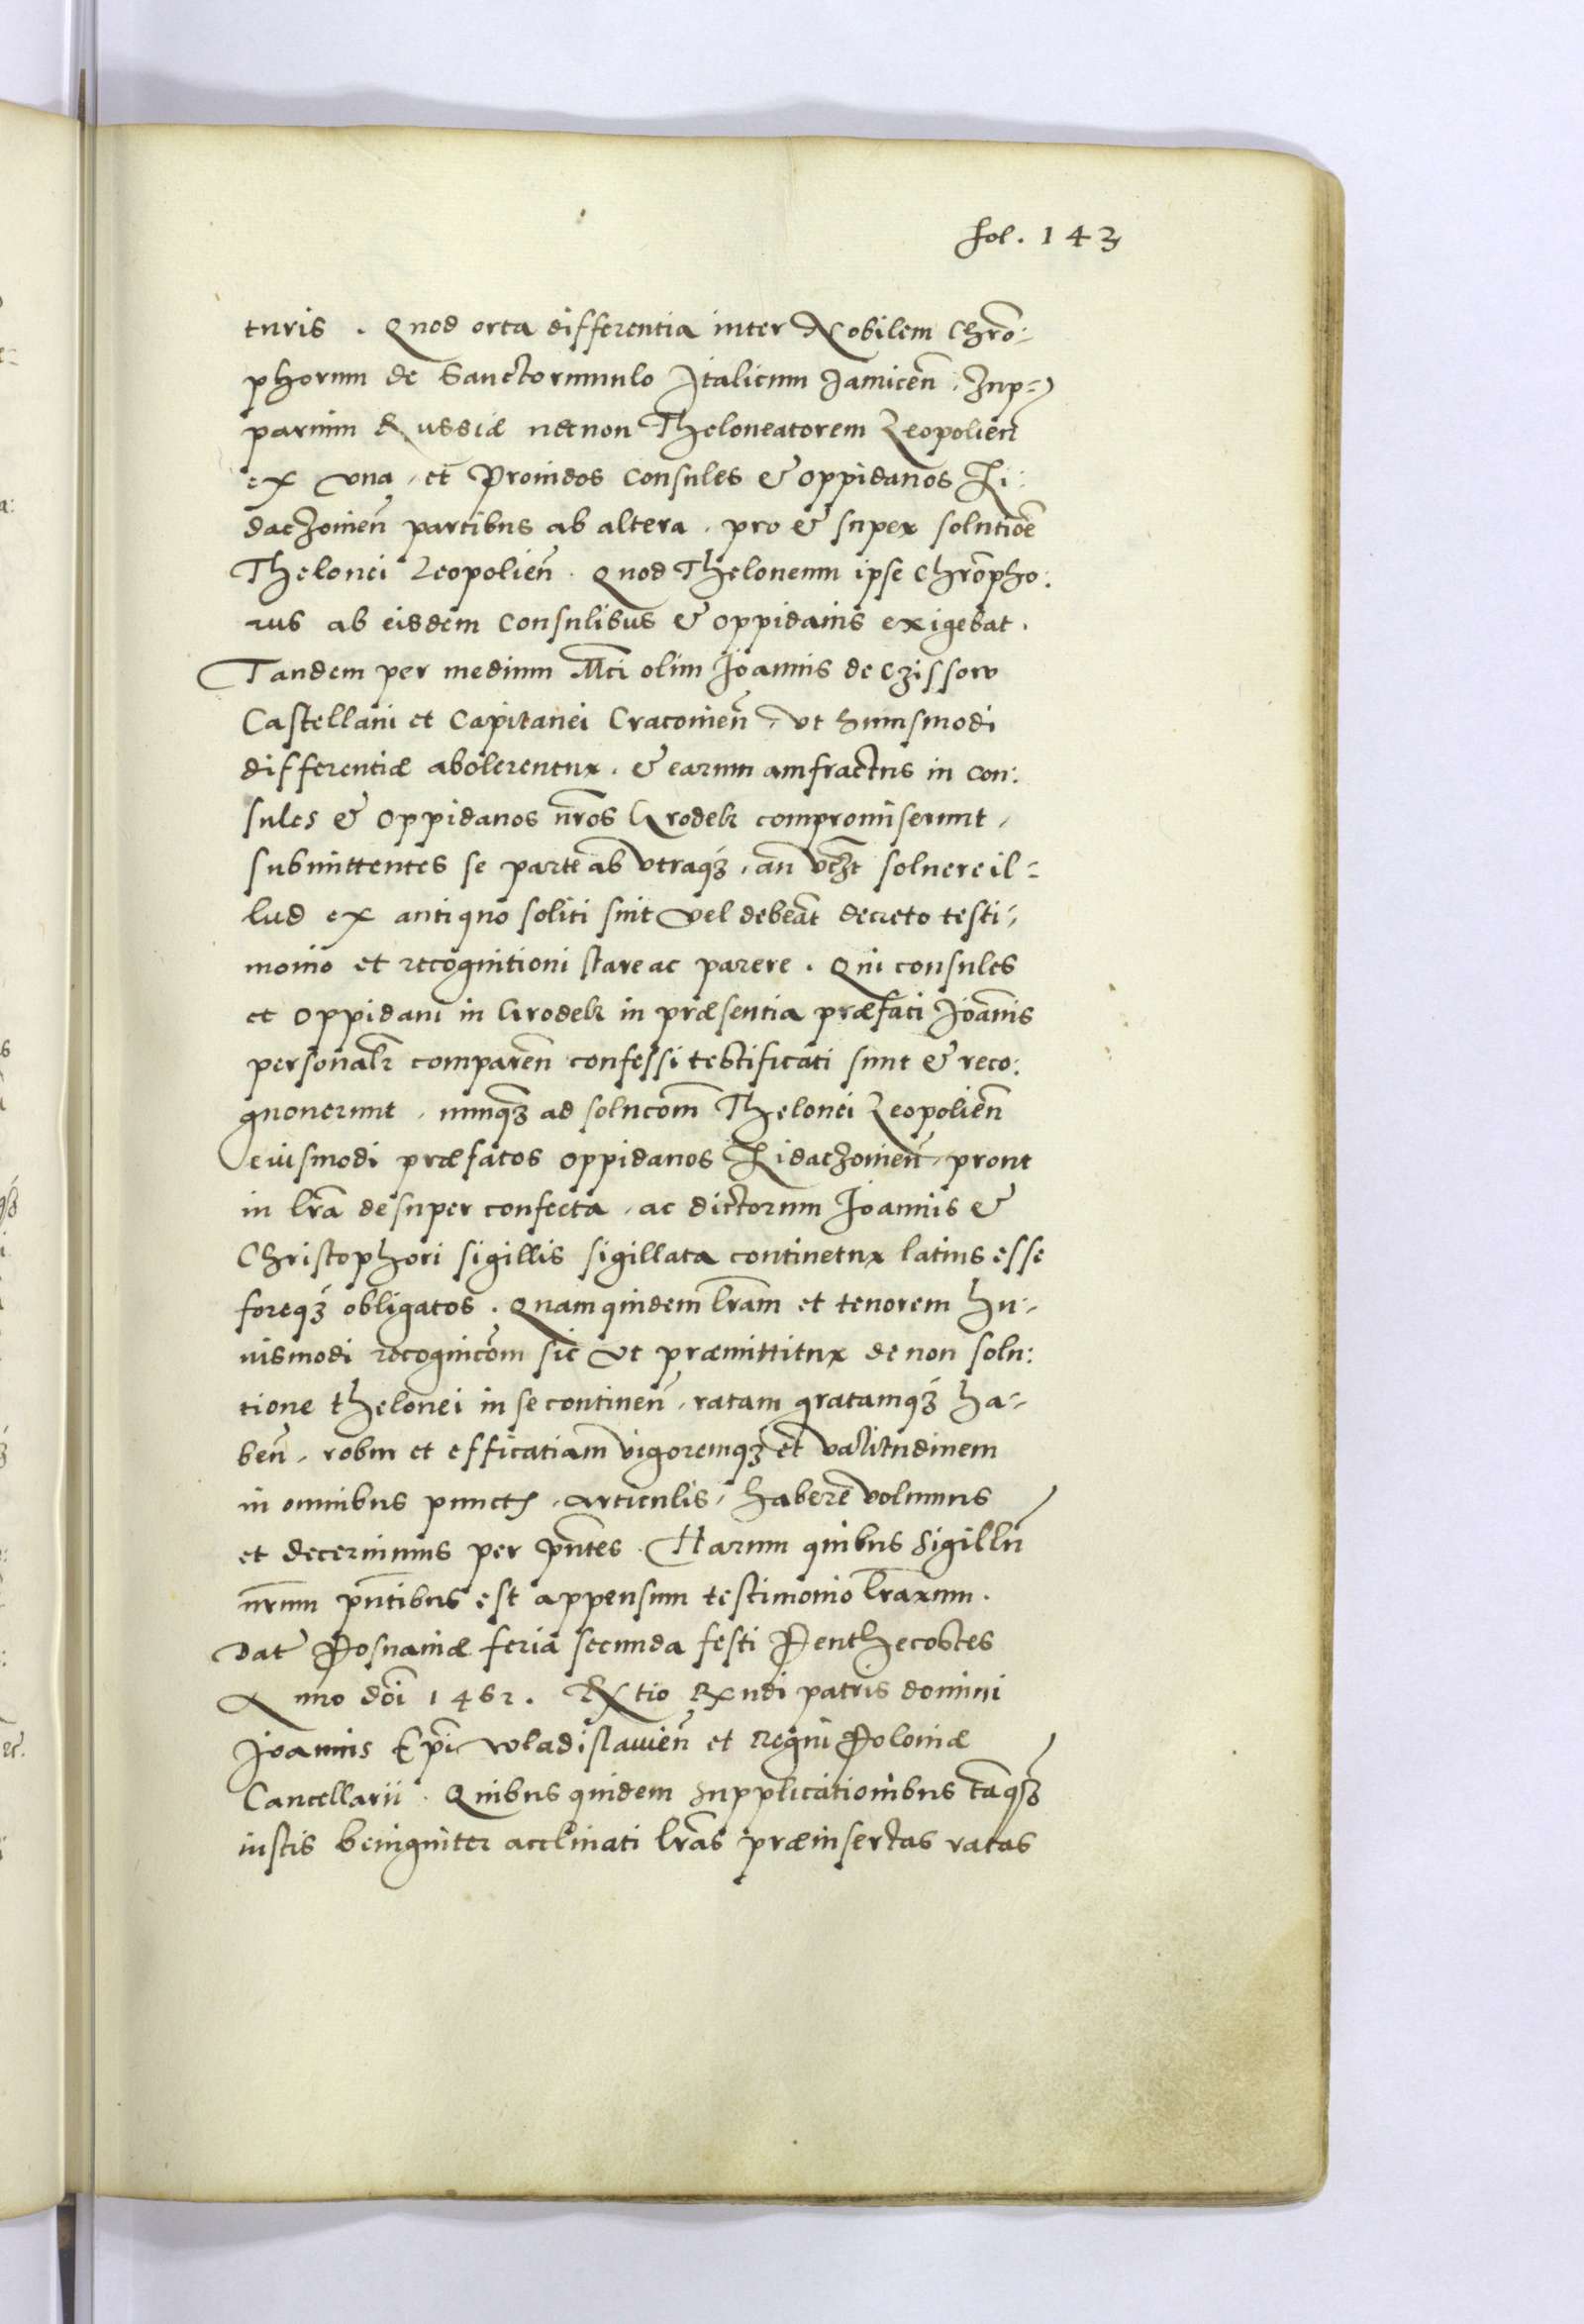 fol. 143
turis . Quod orta differentia inter Nobilem Chrō:
phorum de Sanctoromulo Italicum Januceñ . Zup=
parium Russiæ necnon Theloneatorem Leopolieñ
ex una, et Prouidos consules & oppidanos Zi:
daczouieñ partibus ab altera . pro & super solutioē
Thelonei Leopolieñ . Quod Theloneum ipse Chrōpho:
rus ab eisdem Consulibus & oppidanis exigebat .
Tandem per medium Mci olim Joannis de Czissow
Castellani et Capitanei Cracouieñ, ut huiusmodi
differentiæ abolerentur . & earum amfractus in con:
sules & oppidanos nr̄os Grodek compromiserunt,
submittentes se parte ab utraqȝ . an soluere il=
lud ex antiquo soliti sint uel debeāt decreto testi=
monio et recognitioni stare ac parere . Qui consules
et oppidani in Grodek in præsentia præfati Joānis
personalr̄ compareñ confessi testificati sunt & reco:
gnouerunt, nunqȝ ad solucōm Thelonei Leopolieñ
eiusmodi præfatos oppidanos Zidaczouieñ, prout
in lr̄a desuper confecta, ac dictorum Joannis &
Christophori sigillis sigillata continetur latius esse
foreqȝ obligatos . Quamquidem lr̄am et tenorem hu=
uismodi recognicōm sic ut præmittitur de non solu:
tione thelonei in se continēñ, ratam gratamqȝ ha=
beñ, robur et efficatiam uigoremqȝ et ualitudinem
in omnibus punctis, articulis, habere uolumus
et decernimus per pñtes . Harum quibus sigillū
nr̄um pñtibus est appensum testimonio lr̄arum .
Dat Posnaniæ feria secunda festi Penthecostes
Anno dōi 1462 . Rxtio Rxndi patris domini
Joannis Ep̄i Wladislauieñ et Regni Poloniæ
Cancellarii . Quibus quidem supplicationibus tāqȝ
iustis benigniter acclinati lr̄as præinsertas ratas